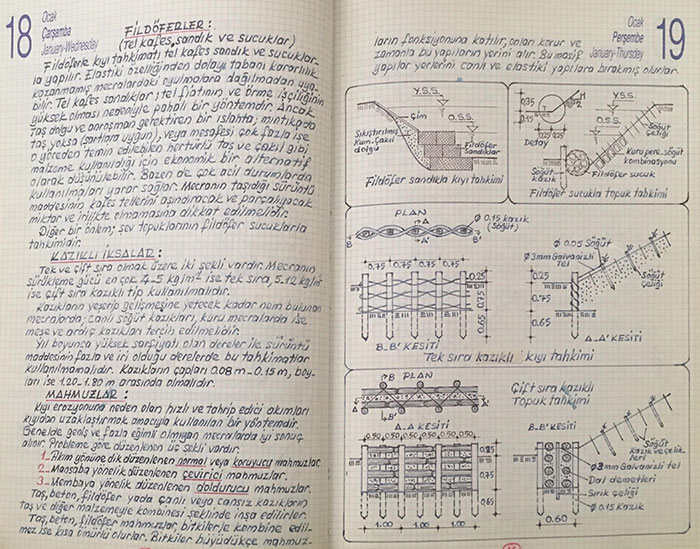 18
Ocak
Çarşamba
January-Wednesday
FİLDÖFERLER :
(Tel kafes, sandık ve sucuklar)
Fildöferle kıyı tahkimatı, tel kafes sandık ve sucuklar-
la yapılır. Elastiki özelliğinden dolayı tabanı kararlılık
kazanmamış mecralardaki oyulmalara dağılmadan uya-
bilir. Tel kafes sandıklar; tel fiatının ve örme işçiliğinin
yüksek olması nedeniyle pahalı bir yöntemdir. Ancak
taş dolgu ve anroşman gerektiren bir ıslahta; mıntıkada
taş yoksa (şartlara uygun), veya mesafesi çok fazla ise
o yöreden temin edilebilen hertürlü taş ve çakıl gibi
malzeme kullanıldığı için ekonomik bir alternatif
olarak düşünülebilir. Bazen de çok acil durumlarda
kullanılmaları yarar sağlar. Mecranın taşıdığı sürüntü
maddesinin kafes tellerini aşındıracak ve parçalıyacak
miktar ve irilikte olmamasına dikkat edilmelidir.
Diğer bir önlem; şev topuklarının fildöfer sucuklarla
tahkimidir.
KAZIKLI İKSALAR :
Tek ve çift sıra olmak üzere iki şekli vardır. Mecranın
sürükleme gücü en çok 4-5 kg/m² ise tek sıra, 5.12 kg/m²
ise çift sıra kazıklı tip kullanılmalıdır.
Kazıkların yeşerip gelişmesine yetecek kadar nem bulunan
mecralarda; canlı söğüt kazıkları, kuru mecralarda ise
meşe ve ardıç kazıkları tercih edilmelidir.
Yıl boyunca yüksek sarfiyatı olan dereler ile sürüntü
maddesinin fazla ve iri olduğu derelerde bu tahkimatlar
kullanılmamalıdır. Kazıkların çapları 0.08 m – 0.15 m, boy-
ları ise 1.20 – 1.80 m arasında olmalıdır.
MAHMUZLAR :
Kıyı erozyonuna neden olan hızlı ve tahrip edici akımları
kıyıdan uzaklaştırmak amacıyla kullanılan bir yöntemdir.
Genelde geniş ve fazla eğimli olmıyan mecralarda iyi sonuç
alınır. Probleme göre düzenlenen üç şekli vardır.
1- Akım yönüne dik düzenlenen normal veya koruyucu mahmuzlar.
2- Mansaba yönelik düzenlenen çevirici mahmuzlar.
3- Membaya yönelik düzenlenen doldurucu mahmuzlar.
Taş, beton, fildöfer yada canlı veya cansız kazıkların
Taş ve diğer malzemeyle kombinesi şeklinde inşa edilirler.
Taş, beton, fildöfer mahmuzlar, bitkilerle kombine edil-
mez ise kısa ömürlü olurlar. Bitkiler büyüdükçe mahmuz-
19
Ocak
Perşembe
January-Thursday
ların fonksiyonuna katılır, onları korur ve
zamanla bu yapıların yerini alır. Bu masif
yapılar yerlerini canlı ve elastiki yapılara bırakmış olurlar.
Y.S.S.
O.S.S.
Çim
Sıkıştırılmış
Kum-Çakıl
dolgu
Fildöfer
Sandıklar
Fildöfer sandıkla kıyı tahkimi
0.35
0.15
H
H/2
0.25 0.25
Detay
Y.S.S.
O.S.S.
Söğüt
çeliği
kuru pere, söğüt
kombinasyonu
Fildöfer sucuk
Söğüt
kazık
Fildöfer sucukla topuk tahkimi
PLAN
A
B
B'
A'
Ø 0.15 kazık
(Söğüt)
0.75 0.75 0.75 0.75
0.25
0.75
0.65
B-B' KESİTİ
Ø 0.05 Söğüt
Ø 3mm Galvanizli
Tel
Söğüt
çeliği
0.25
0.75
0.65
A-A' KESİTİ
Tek sıra kazıklı kıyı tahkimi
B PLAN
A
A
B'
Çift sıra kazıklı
Topuk tahkimi
A.A KESİTİ
0.50 0.50 0.50 0.50 0.50 0.50
0.75
0.65
1.00 1.00
B-B KESİTİ
0.60
Söğüt
kazık ve çelik-
leri
Ø 3mm Galvanizli tel
Dal demetleri
Sırık çeliği
Ø 0.15 Kazık